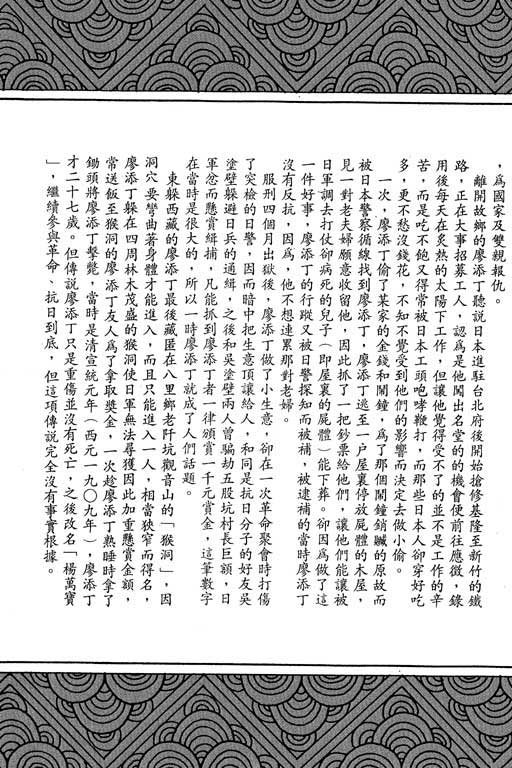 ，為國家及雙親報仇。
離開故鄉的廖添丁聽說日本進駐台北府後開始搶修基隆至新竹的鐵
路，正在大事招募工人，認為是他闖出名堂的的機會便前往應徵，錄
用後每天在炙熱的太陽下工作，但讓他覺得受不了的並不是工作的辛
苦，而是吃不飽又得常被日本工頭咆哮鞭打，而那些日本人卻穿好吃
多，更不愁沒錢花，不知不覺受到他們的影響而決定去做小偷。
一次，廖添丁偷了某家的金錢和鬧鐘，為了那個鬧鐘銷贓的原故而
被日本警察循線找到廖添丁，廖添丁逃至一户屋裏停放屍體的木屋，
見一對老夫婦願意收留他，因此抓了一把鈔票給他們，讓他們能讓被
日軍調去打仗卻病死的兒子（即屋裏的屍體）能下葬。卻因為做了這
一件好事，廖添丁的行蹤又被日警探知而被補，被逮補的當時廖添丁
沒有反抗，因為，他不想連累那對老婦。
服刑四個月出獄後，廖添丁做了小生意，卻在一次革命聚會時打傷
了突檢的日警，因而暗中把生意頂讓給人，和同是抗日分子的好友吳
塗壁躲避日兵的通緝，之後和吳塗壁兩人曾騙劫五股坑村長巨額，日
軍忿而懸賞緝捕，凡能抓到廖添丁者一律頒賞一千元賞金，這筆數字
在當時是很大的，所以一時廖添丁就成了人們話題。
東躲西藏的廖添丁最後藏匿在八里鄉老阡坑觀音山的「猴洞」，因
洞穴要彎曲著身體才能進入，而且只能進入一人，相當狹窄而得名，
廖添丁躲在四周林木茂盛的猴洞使日軍無法尋獲因此加重懸賞金額，
常送飯至猴洞的廖添丁友人為了拿取獎金，一次趁廖添丁熟睡時拿了
鋤頭將廖添丁擊斃，當時是清宣統元年（西元一九〇九年），廖添丁
才二十七歲。但傳說廖添丁只是重傷並沒有死亡，之後改名「楊萬寶
」，繼續參與革命、抗日到底，但這項傳說完全沒有事實根據。